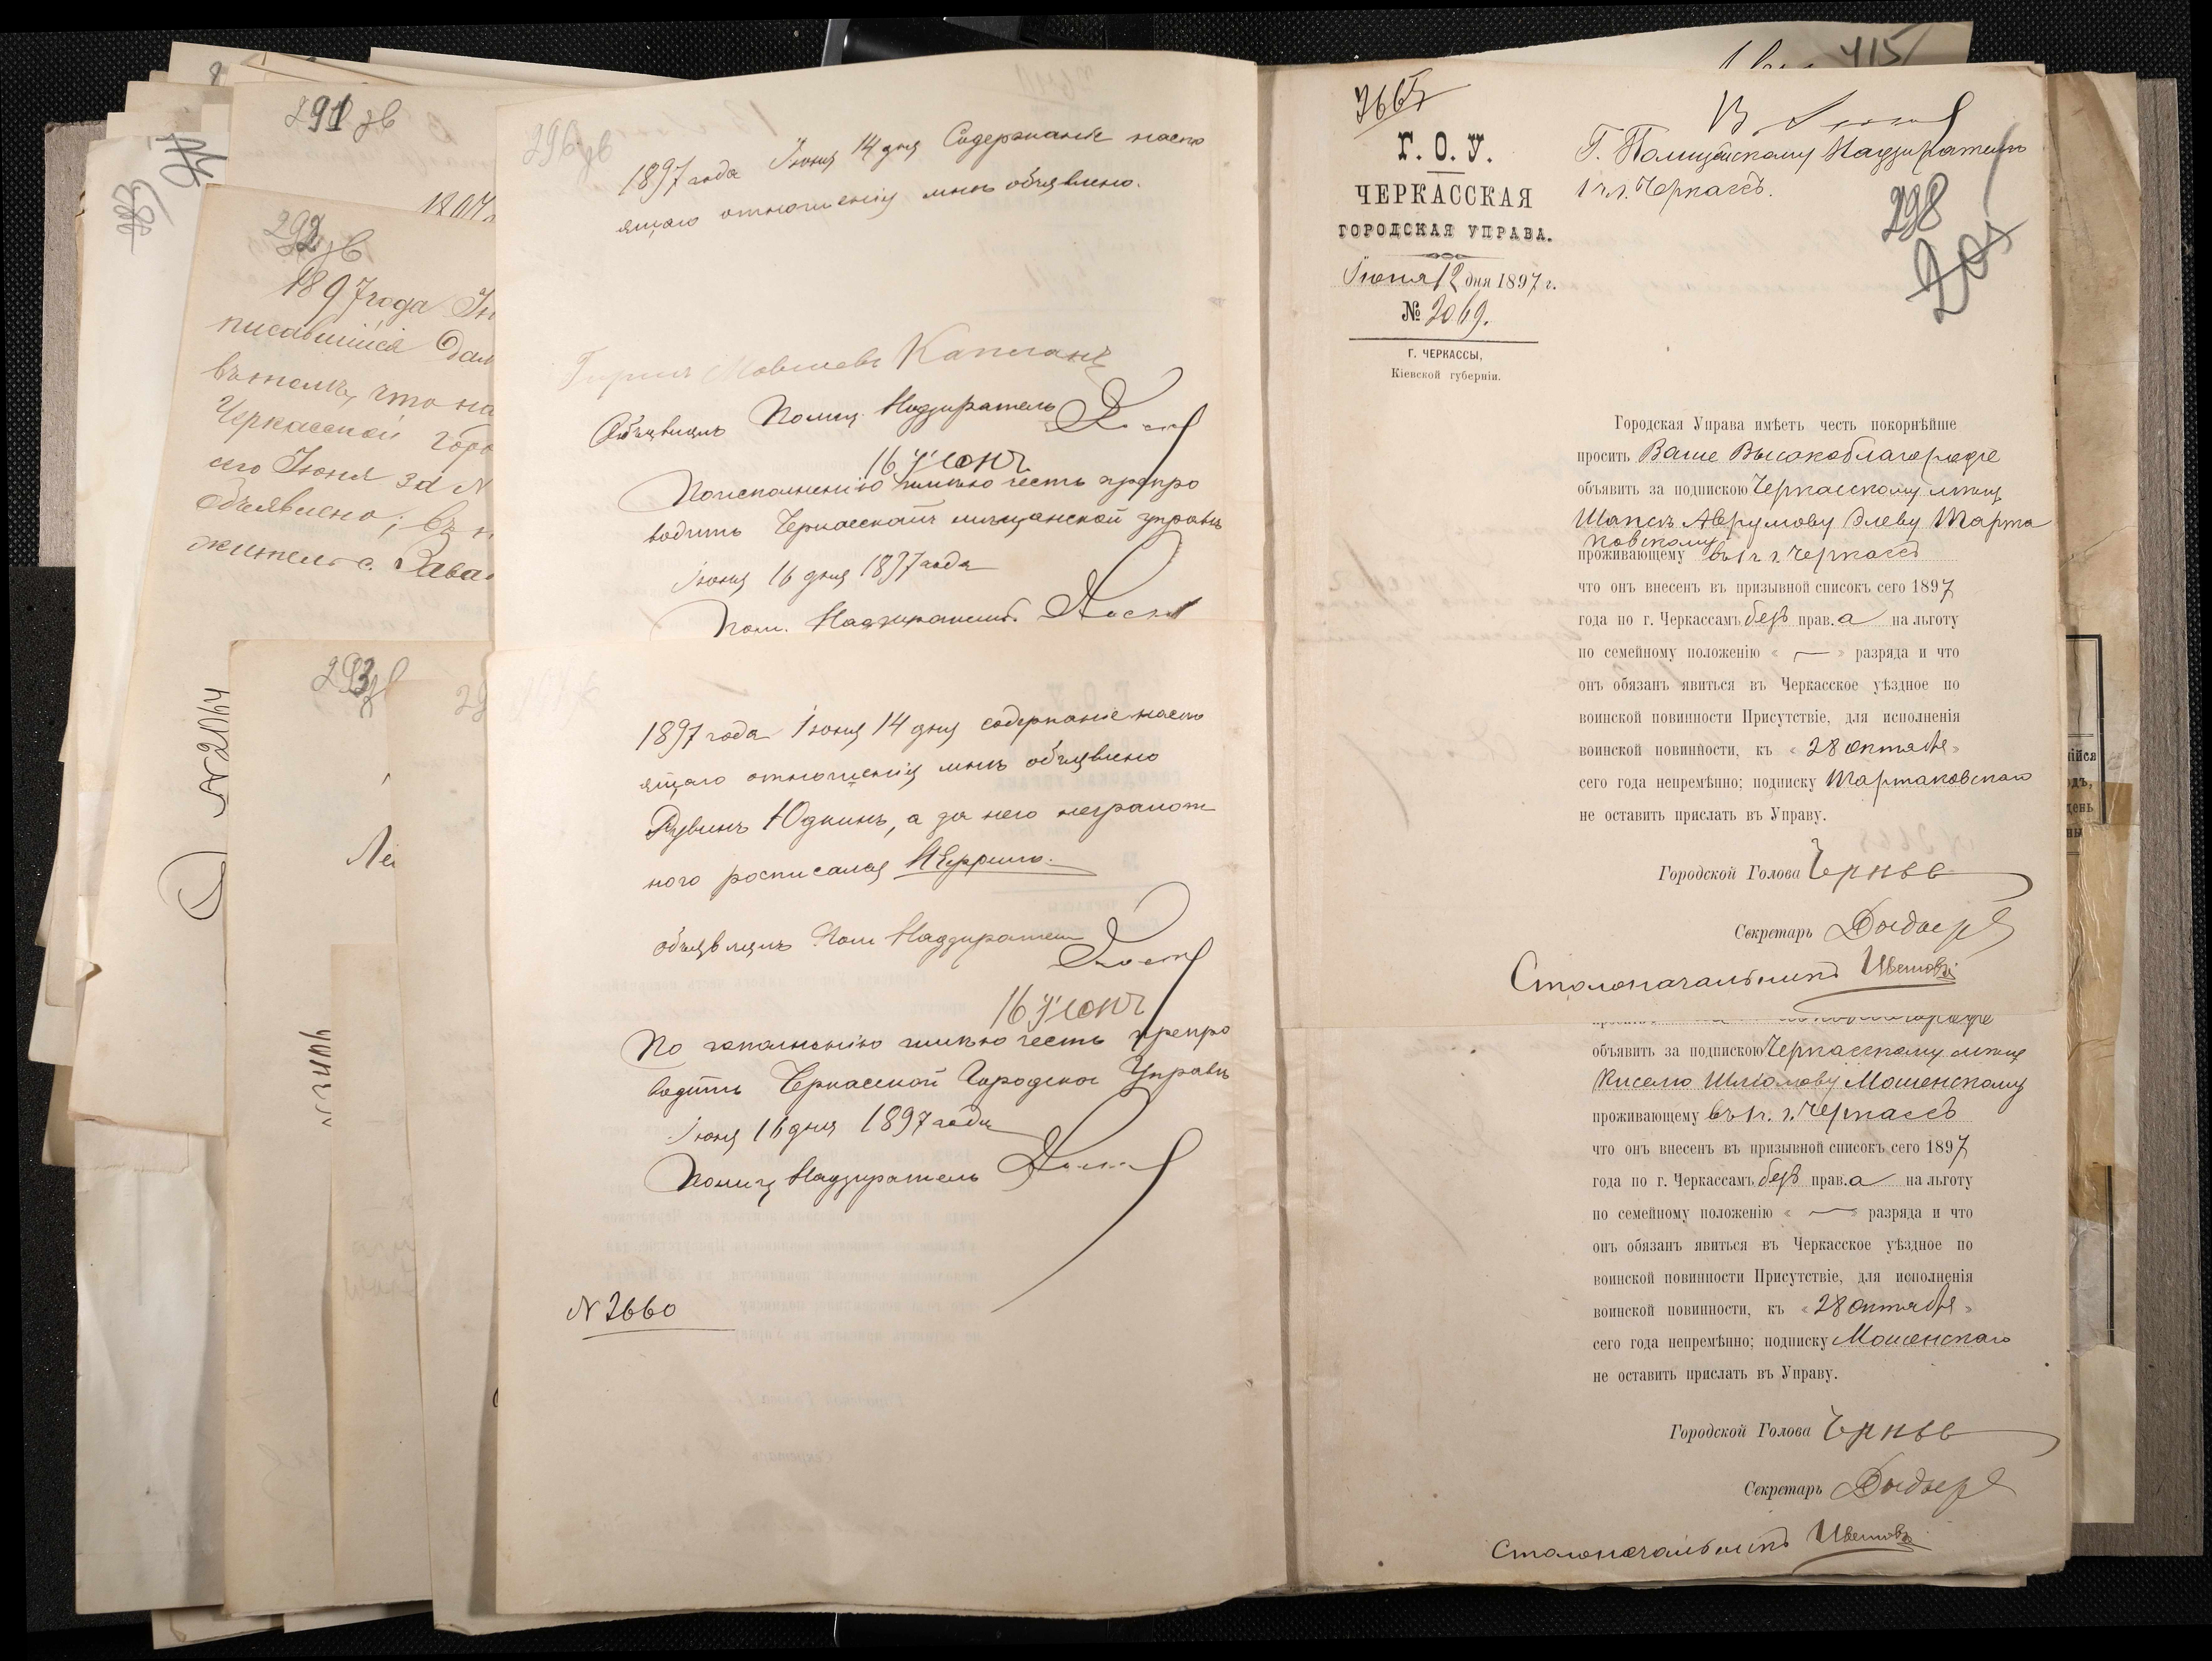 291 зв
292 зв
1897 года
писавшійся
въ томъ, что на
Черкасской горо
сего Іюня за N
объявлено; въ
жител. с.
293
N 2064
296 зв
1897 года Іюня 14 дня Содержаніе насто
ящаго отношенія мнѣ объявлено.
Гиршъ Мовшевъ Капланъ
Объявилъ Полиц. Надзиратель
16 Іюня
По исполненію имѣю честь препро
водить Черкасской мѣщанской управѣ
Іюня 16 дня 1897 года
Пол. Надзиратель
1897 года Іюня 14 дня содержаніе насто
ящаго отношенія мнѣ объявлено
Рувинъ Юдкинъ, а за него неграмот
ного росписался
объявилъ Пол Надзиратель
16 Іюня
По исполненію имѣю честь препро
водить Черкасской Городской Управѣ
Іюня 16 дня 1897 года
Полиц Надзиратель
N 2660
415
2665
Г. О. У.
ЧЕРКАССКАЯ
ГОРОДСКАЯ УПРАВА.
Іюня 12 дня 1897 г.
№ 2069.
Г. ЧЕРКАССЫ,
Кіевской губерніи.
Г. Полицейскому Надзирателю
1 ч. г. Черкассъ.
298
205
Городская Управа имѣетъ честь покорнѣйше
просить Ваше Высокоблагородіе
объявить за подпискою Черкасскому мѣщ
Шапсѣ Аврумову Элеву Тарта
ковскому
проживающему въ 1 ч. г. Черкассъ
что онъ внесенъ въ призывной списокъ сего 1897
года по г. Черкассамъ безъ прав. а на льготу
по семейному положенію « — » разряда и что
онъ обязанъ явиться въ Черкасское уѣздное по
воинской повинности Присутствіе, для исполненія
воинской повинности, къ « 28 октября »
сего года непремѣнно; подписку Тартаковскаго
не оставить прислать въ Управу.
Городской Голова
Секретарь
Столоначальникъ Цвѣтовъ
объявить за подпискою Черкасскому мѣщ
Киселю Шліомову Мошенскому
проживающему въ 1 ч. г. Черкассъ
что онъ внесенъ въ призывной списокъ сего 1897
года по г. Черкассамъ безъ прав. а на льготу
по семейному положенію « — » разряда и что
онъ обязанъ явиться въ Черкасское уѣздное по
воинской повинности Присутствіе, для исполненія
воинской повинности, къ « 28 октября »
сего года непремѣнно; подписку Мошенскаго
не оставить прислать въ Управу.
Городской Голова
Секретарь
Столоначальникъ Цвѣтовъ